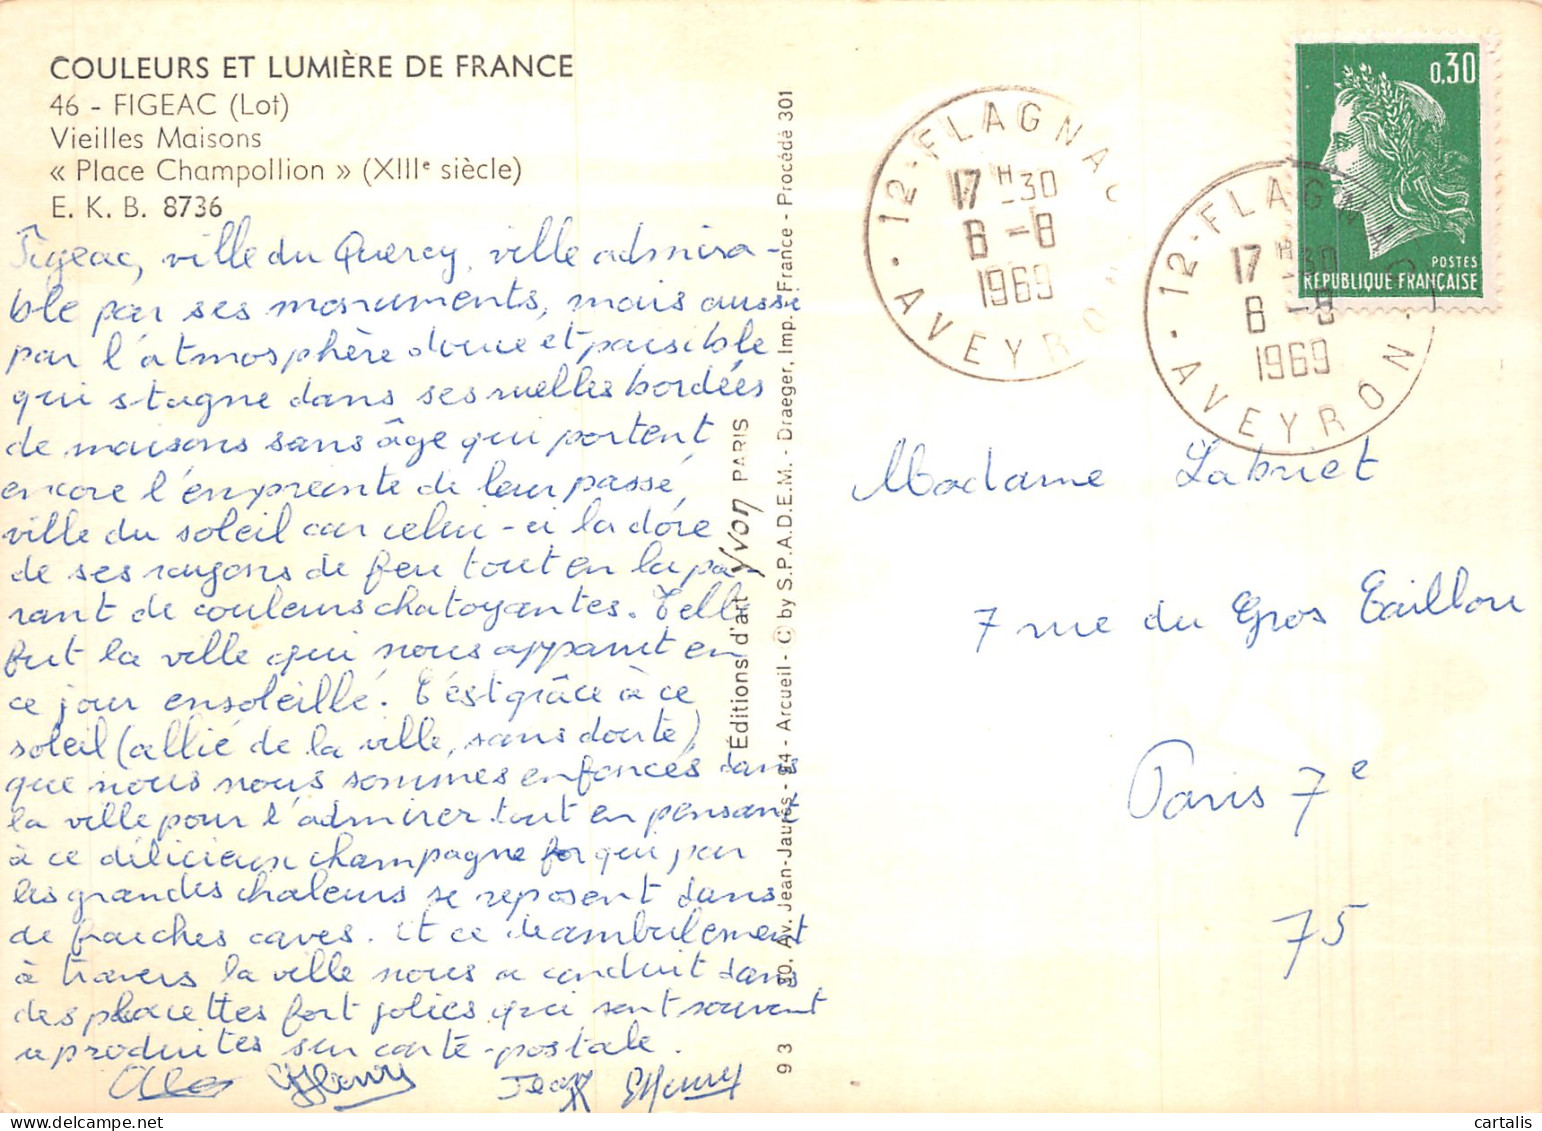 COULEURS ET LUMIÈRE DE FRANCE
46 - FIGEAC (Lot)
Vieilles Maisons
« Place Champollion » (XIIIe siècle)
E. K. B. 8736
Figeac, ville du Quercy, ville admira-
ble par ses monuments, mais aussi
par l'atmosphère douce et paisible
qui stagne dans ses ruelles bordées
de maisons sans âge qui portent
encore l'empreinte de leur passé,
ville du soleil car celui-ci la dore
de ses rayons de feu tout en la pa-
rant de couleurs chatoyantes. Telle
fut la ville qui nous apparut en
ce jour ensoleillé. C'est grâce à ce
soleil (allié de la ville, sans doute)
que nous nous sommes enfoncés dans
la ville pour l'admirer tout en pensant
à ce délicieux champagne qui par
les grandes chaleurs se reposent dans
de fraiches caves. Et ce deambulement
à travers la ville nous a conduit dans
des placettes fort jolies qui sont souvent
reproduites sur carte-postale.
Éditions d'art Yvon PARIS
93 30, Av. Jean-Jaurès - 94 - Arcueil - © by S.P.A.D.E.M. - Draeger, Imp. France - Procédé 301
12 - FLAGNAC
17 H 30
8 - 8
1969
AVEYRON
12 - FLAGNAC
17 H 30
8 - 8
1969
AVEYRON
0,30
POSTES
RÉPUBLIQUE FRANÇAISE
Madame Labriet
7 rue du Gros Caillou
Paris 7e
75
cartalis
delcampe.net